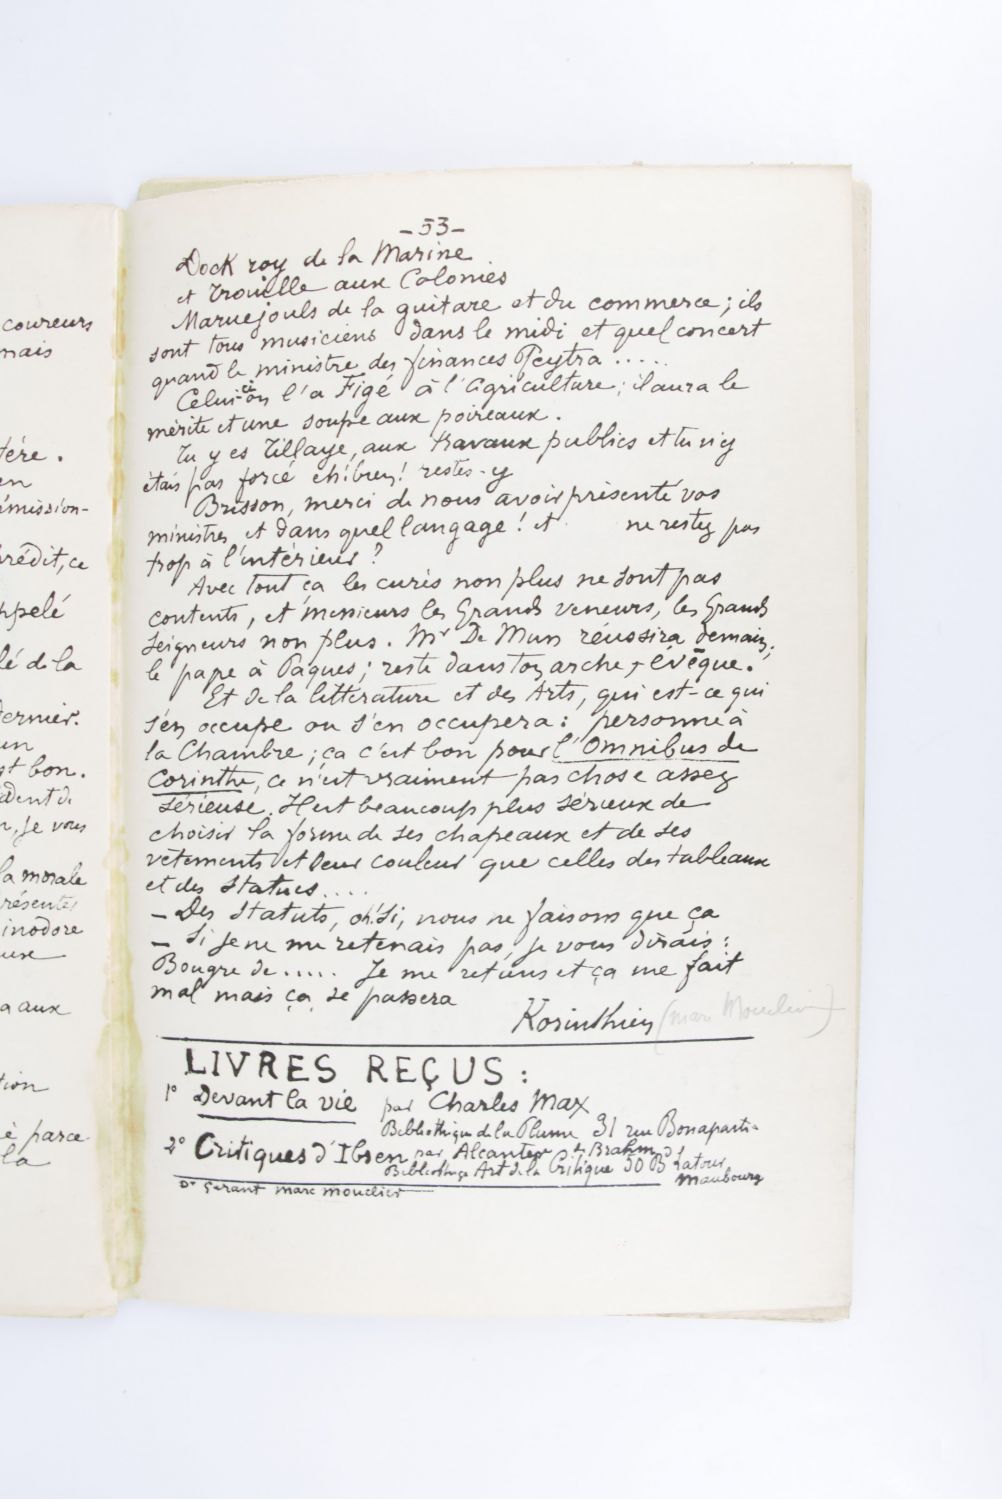 coureurs
mais
tére.
en
émission-
crédit, ce
appelé
lé de la
dernier.
un
st bon.
ident de
n, je vous
la morale
résenter
inodore
eux
a aux
tion
é parce
la
-53-
Dock roy de la Marine
et Trouille aux Colonies
Maruejouls de la guitare et du commerce; ils
sont tous musiciens dans le midi et quel concert
quand le ministre des finances Peytra.....
Celui-ci on l'a Figé à l'agriculture; il aura le
mérite et une soupe aux poireaux.
Tu y es Tillaye, aux travaux publics et tu n'y
étais pas forcé eh! bien! restes-y
Brisson, merci de nous avoir présenté vos
ministres, et dans quel langage! et ne restez pas
trop à l'intérieur?
Avec tout ça les curés non plus ne sont pas
contents, et messieurs les Grands veneurs, les Grands
seigneurs non plus. Mr De Mun réussira demain;
le pape à Pâques; reste dans ton arche, - évêque.
Et de la littérature et des Arts, qui est-ce qui
s'en occupe ou s'en occupera: personne à
la Chambre; ça c'est bon pour l'Omnibus de
Corinthe, ce n'est vraiment pas chose assez
sérieuse. Il est beaucoup plus sérieux de
choisir la forme de ses chapeaux et de ses
vêtements et leur couleur que celles des tableaux
et des statues....
- Des statuts, oh! si, nous ne faisons que ça
- Si je ne me retenais pas, je vous dirais:
Bougre de..... Je me retiens et ça me fait
mal mais ça se passera
Korinthien (marc Mouclier)
LIVRES REÇUS:
1° Devant la vie par Charles Max
Bibliothèque de la Plume 31 rue Bonaparte
2° Critiques d'Ibsen par Alcanter de Brahm
Bibliothèque Art de la Critique 50 Bd Latour
Maubourg
Dr gérant marc mouclier